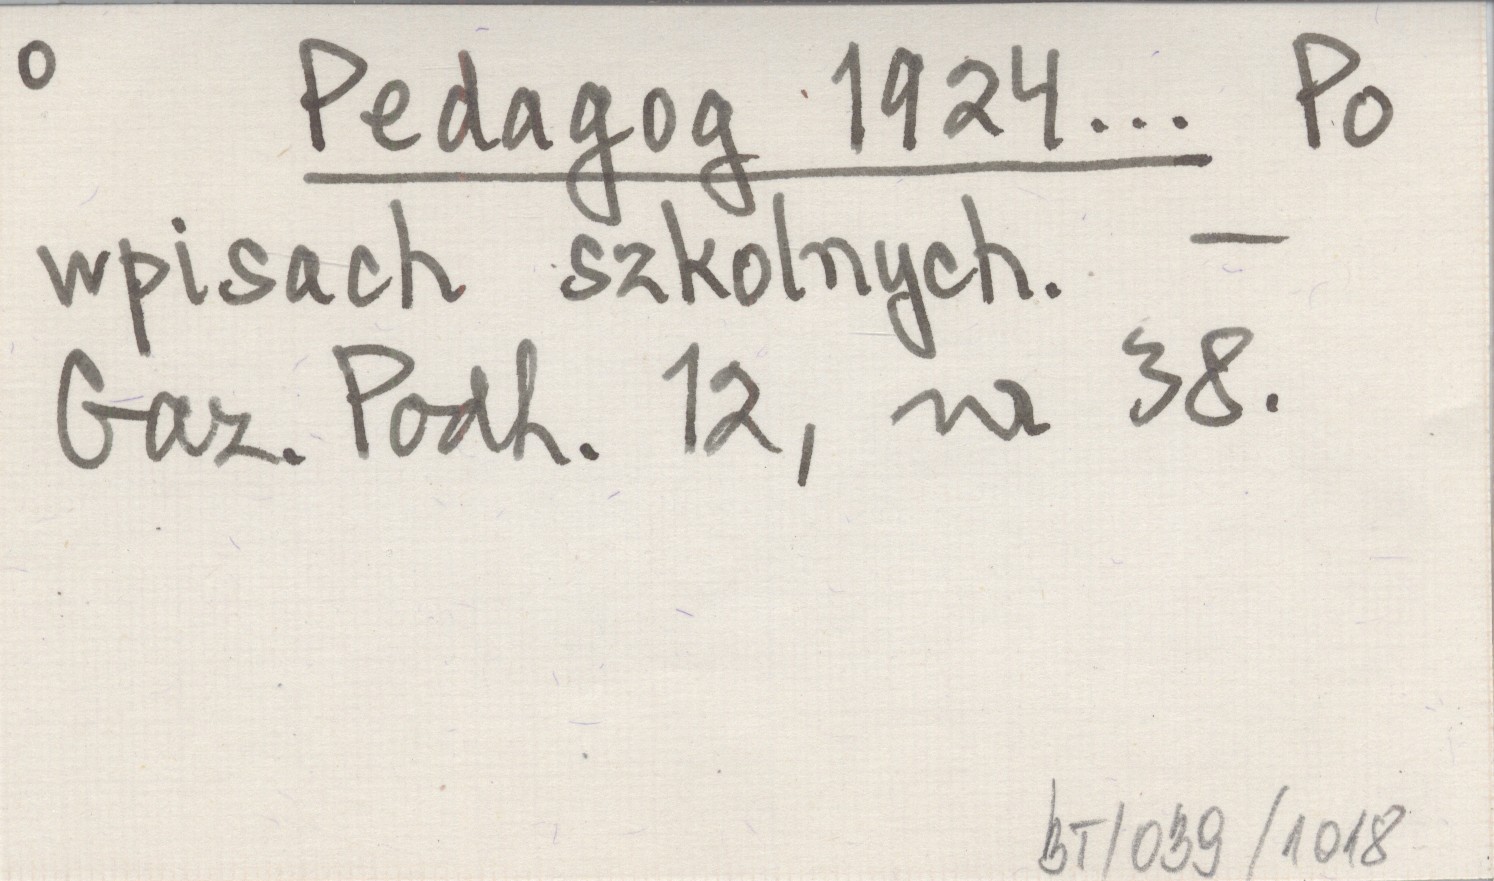 o Pedagog 1924... Po
wpisach szkolnych. —
Gaz. Podh. 12, nr 38.
BT/039/1018